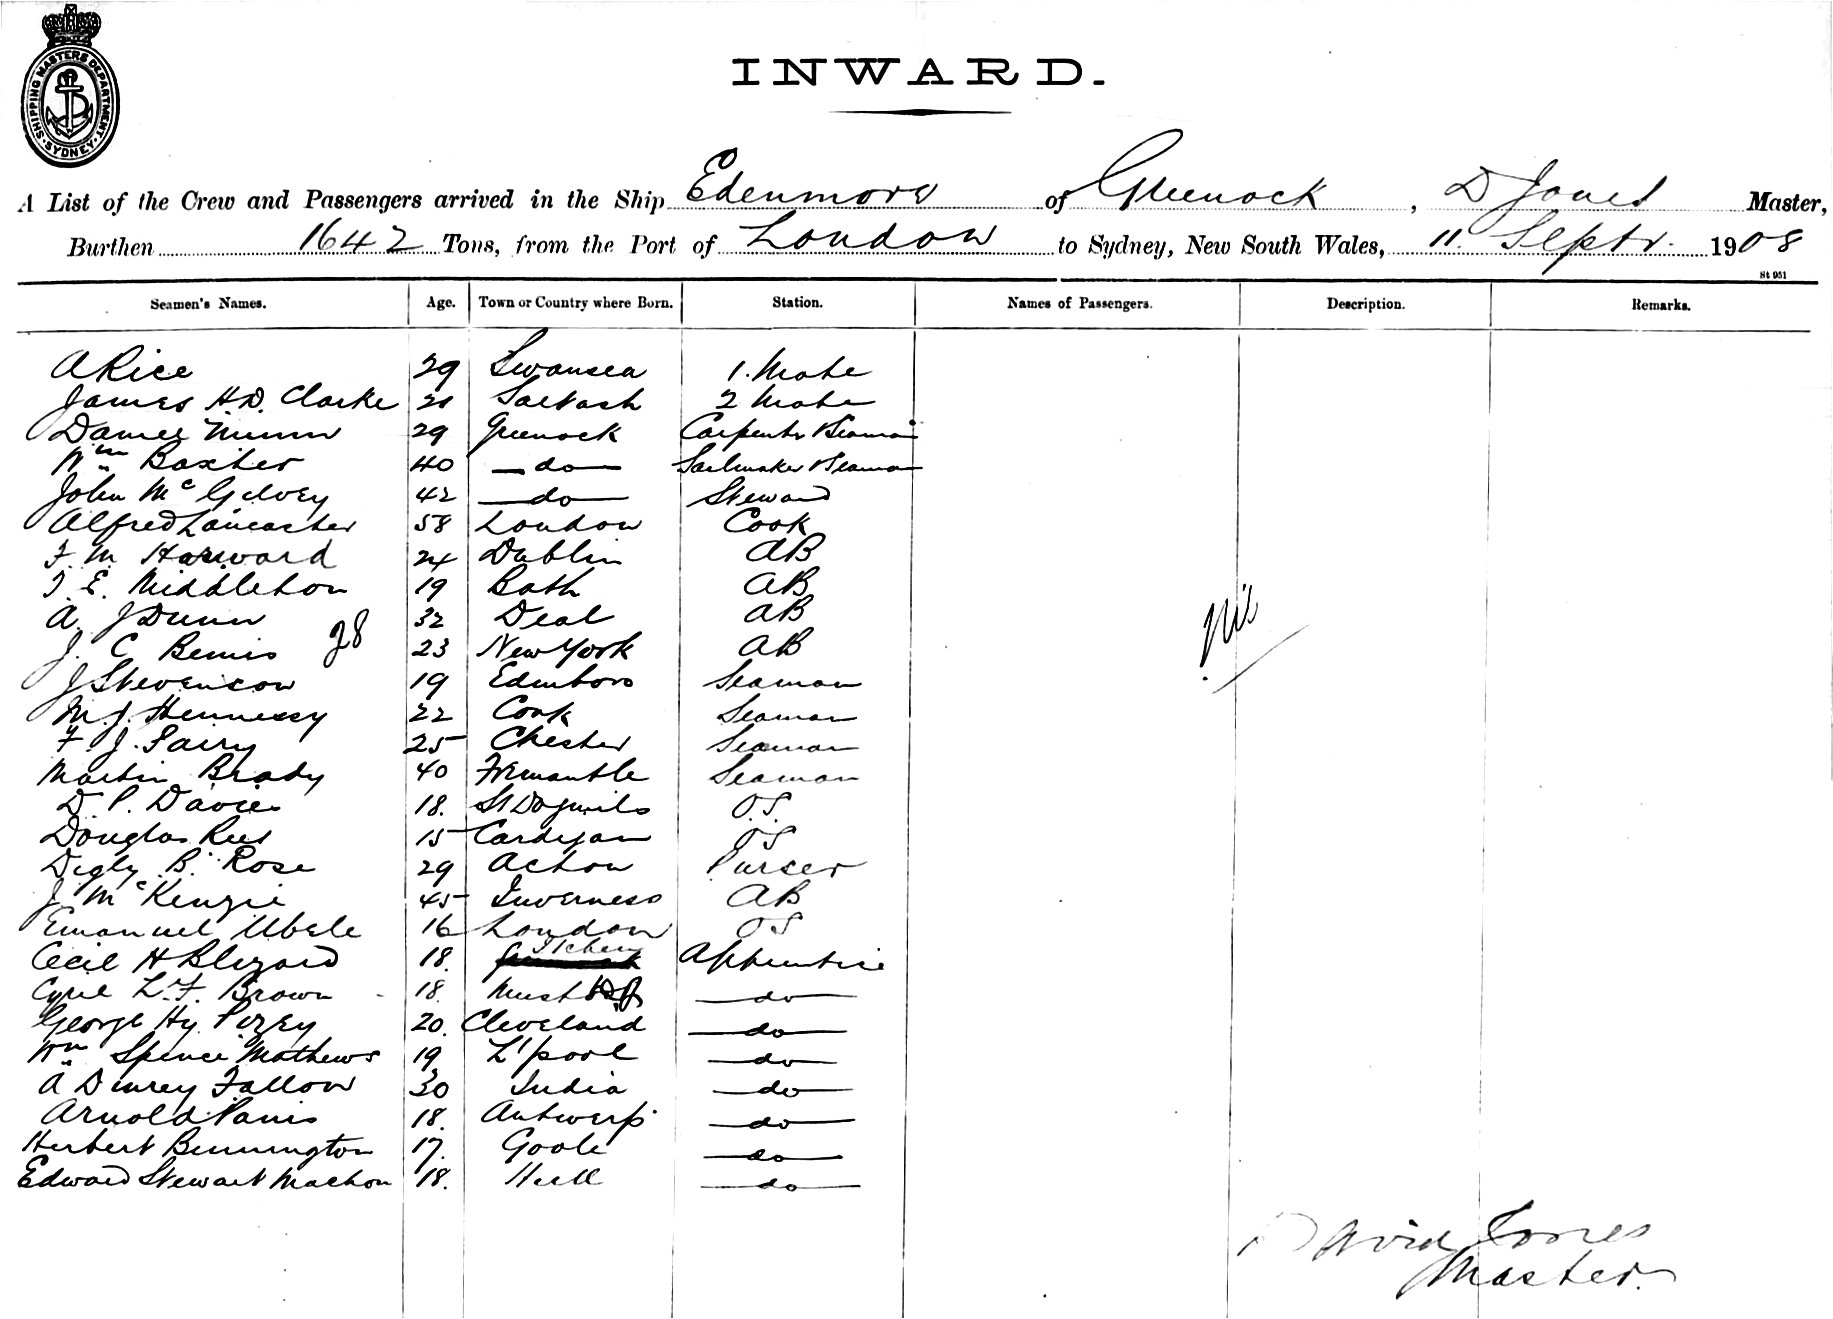 SHIPPING MASTERS DEPARTMENT. SYDNEY.
INWARD.
A List of the Crew and Passengers arrived in the Ship Edenmore of Greenock, D Jones Master,
Burthen 1642 Tons, from the Port of London to Sydney, New South Wales, 11 Septr. 1908
St 951
Seamen's Names. Age. Town or Country where Born. Station. Names of Passengers. Description. Remarks.
A Rice 29 Swansea 1. Mate
James H.D. Clarke 21 Saltash 2 Mate
Daniel Munn 29 Greenock Carpenter & Seaman
Wm Baxter 40 do Sailmaker & Seaman
John McGilvey 42 do Steward
Alfred Lancaster 58 London Cook
F. M. Harward 24 Dublin AB
T. E. Middleton 19 Bath AB
A. J Dunn 32 Deal AB
28 Nil
J. C Bemis 23 New York AB
J Stevenson 19 Edinboro Seaman
M. J. Hennessy 22 Cork Seaman
F. J. Parry 25 Chester Seaman
Martin Brady 40 Fremantle Seaman
D. P. Davies 18. St Dogmils O.S.
Douglas Rees 15 Cardigan OS
Digby B. Rose 29 Acton Purser
J McKenzie 45 Inverness AB
Emanuel Ubele 16 London OS
Cecil H Blizard 18. Itchen Apprentice
Cyril L. F. Brown 18. do
George Hy. Pizey 20. Cleveland do
Wm Spence Mathews 19 L'pool do
A Denrey Fallow 30 India do
Arnold Panis 18. Antwerp do
Herbert Bennington 17. Goole do
Edward Stewart Machon 18. Hull do
David Jones
Master.